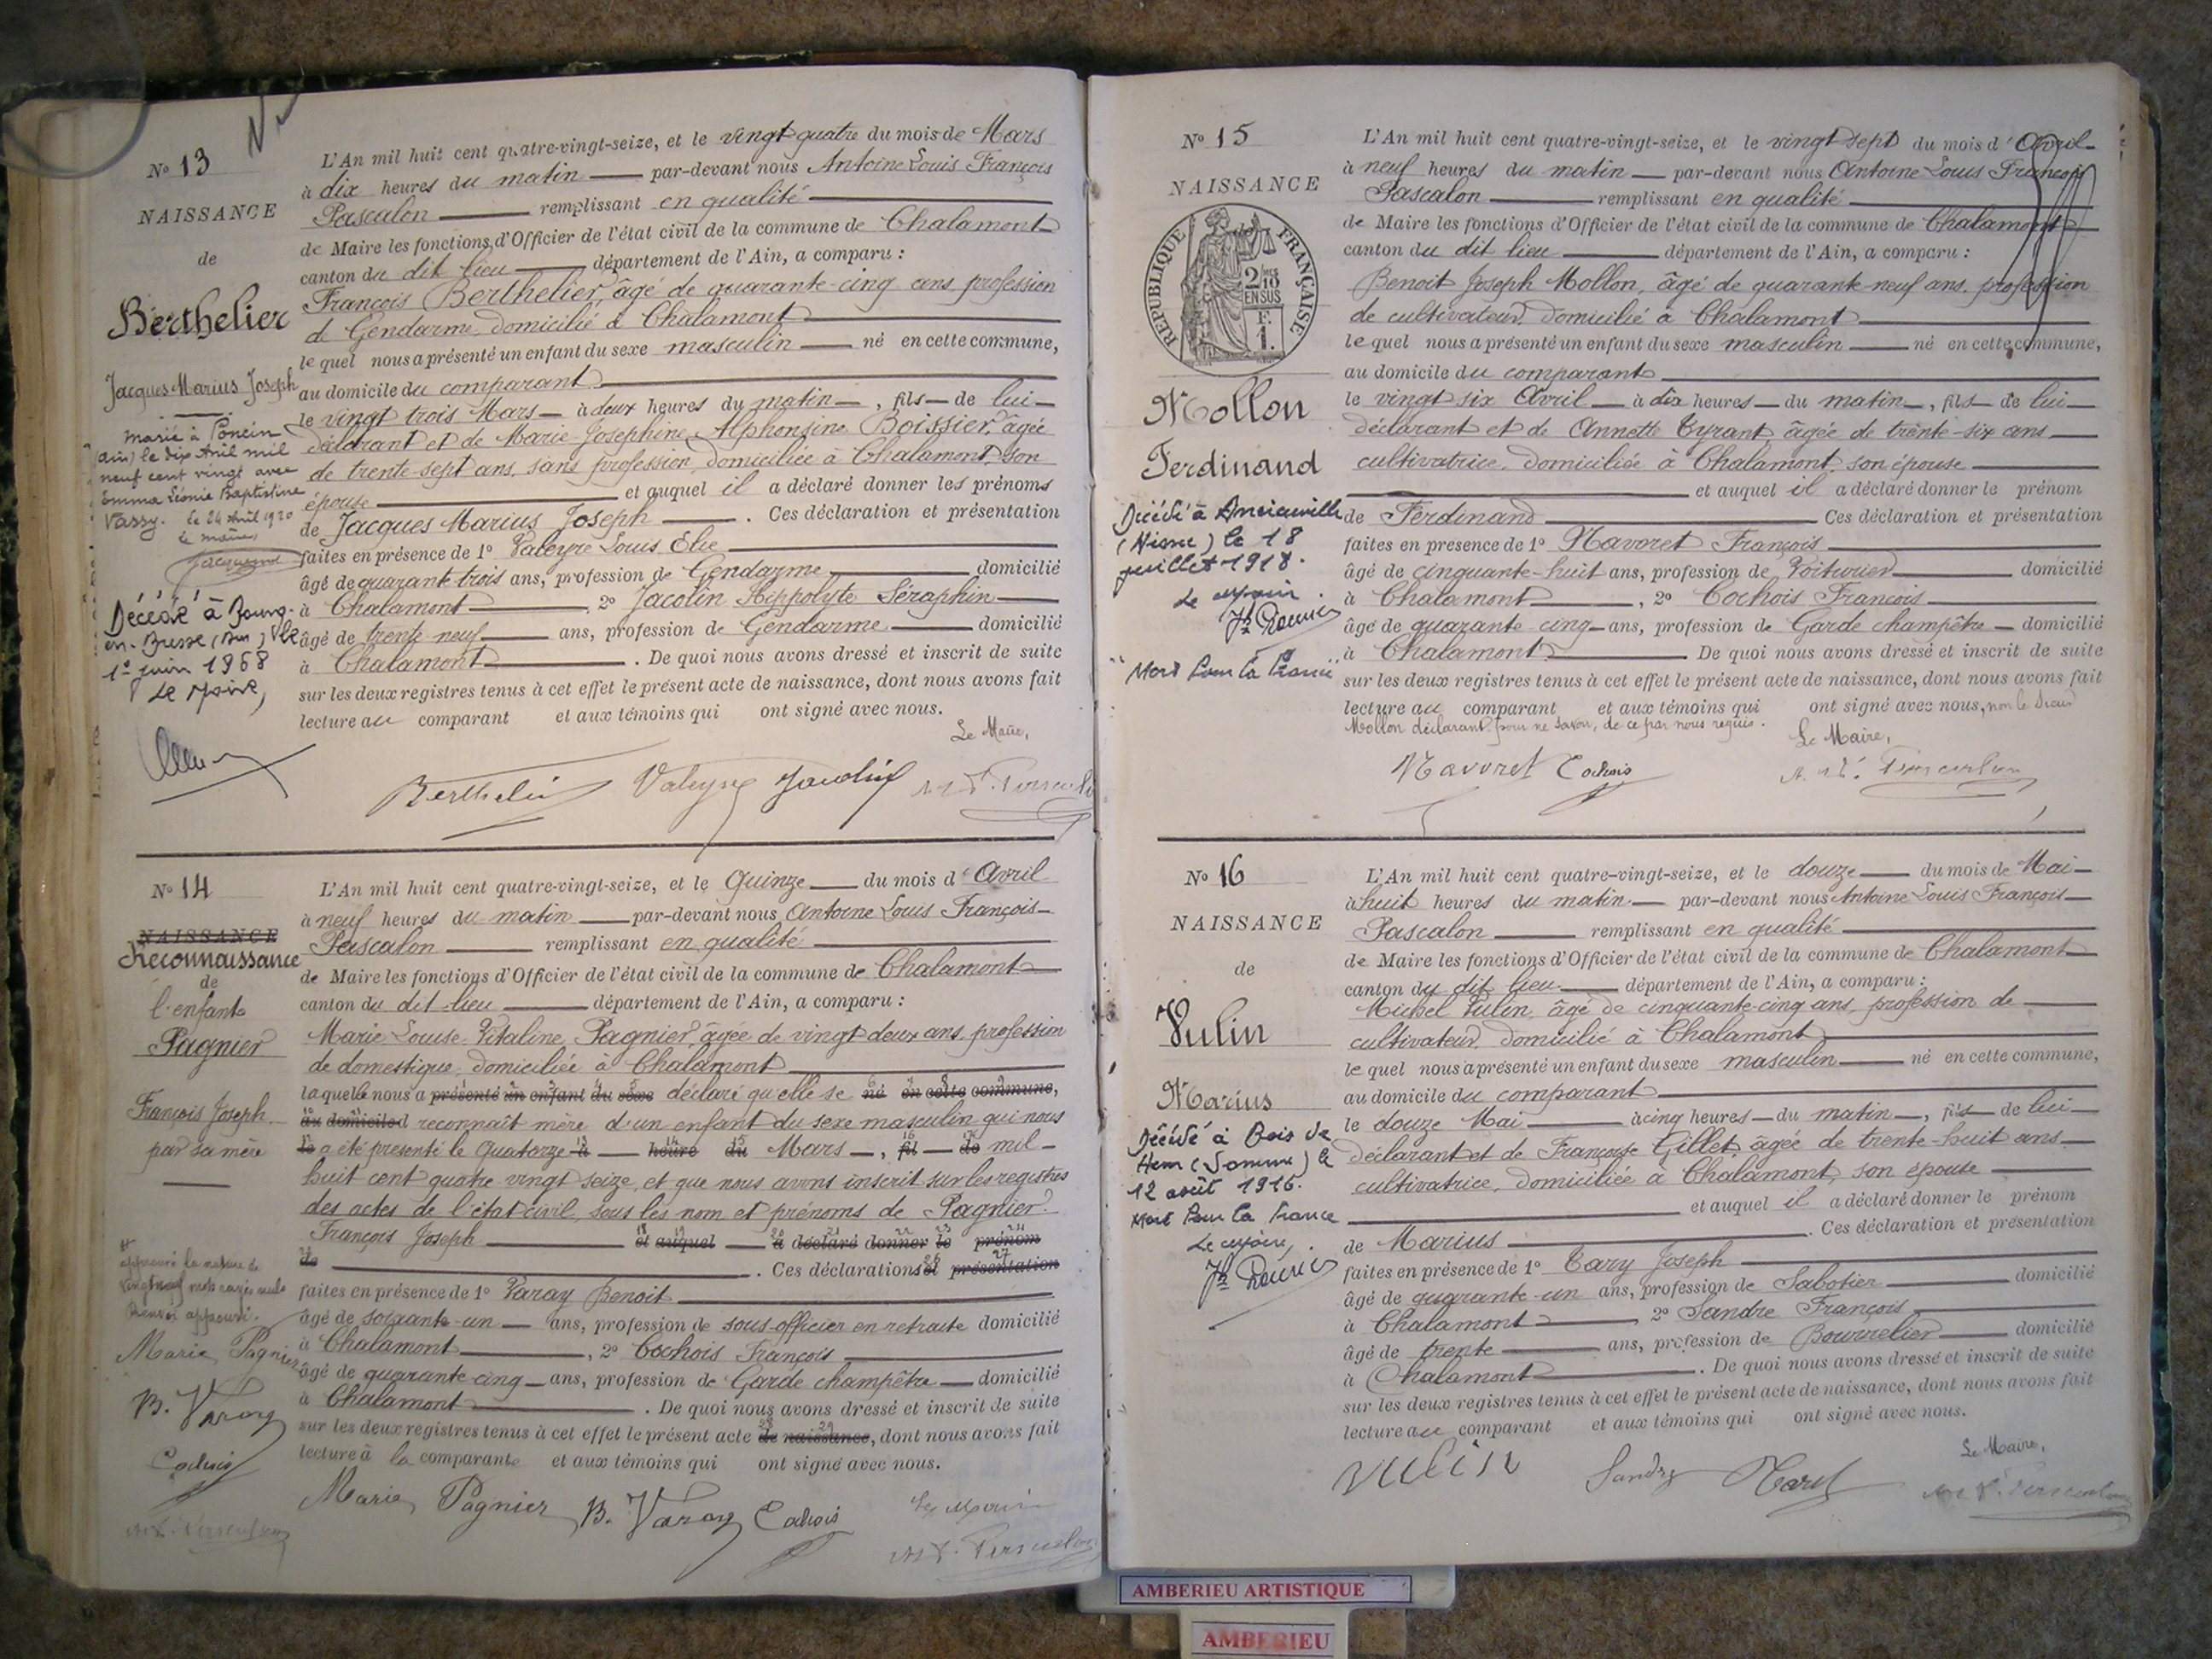 N° 13
NAISSANCE
de
Berthelier
Jacques Marius Joseph
marié à Poncin
(ain) le dix Avril mil
neuf cent vingt avec
Emma Léonie Baptistine
Vassy. le 24 Avril 1920
le maire
Décédé à Bourg-
en-Bresse (Ain) le
1er juin 1968
Le Maire,
L'An mil huit cent quatre-vingt-seize, et le vingt quatre du mois de Mars
à dix heures du matin par-devant nous Antoine Louis François
Pascalon remplissant en qualité
de Maire les fonctions d'Officier de l'état civil de la commune de Chalamont
canton du dit lieu département de l'Ain, a comparu :
François Berthelier, âgé de quarante-cinq ans profession
de Gendarme domicilié à Chalamont
le quel nous a présenté un enfant du sexe masculin né en cette commune,
au domicile du comparant
le vingt trois Mars à deux heures du matin, fils de lui
déclarant et de Marie Josephine Alphonsine Boissier, âgée
de trente-sept ans, sans profession, domiciliée à Chalamont, son
épouse et auquel il a déclaré donner les prénoms
de Jacques Marius Joseph. Ces déclaration et présentation
faites en présence de 1° Valeyre Louis Elie
âgé de quarante trois ans, profession de Gendarme domicilié
à Chalamont, 2° Jacolin Hippolyte Séraphin
âgé de trente neuf ans, profession de Gendarme domicilié
à Chalamont. De quoi nous avons dressé et inscrit de suite
sur les deux registres tenus à cet effet le présent acte de naissance, dont nous avons fait
lecture au comparant et aux témoins qui ont signé avec nous.
Le Maire,
Berthelier Valeyre Jacolin
N° 14
NAISSANCE
Reconnaissance
de
l'enfant
Pagnier
François Joseph
par sa mère
Marie Pagnier
B. Varay
Cochois
L'An mil huit cent quatre-vingt-seize, et le Quinze du mois d'Avril
à neuf heures du matin par-devant nous Antoine Louis François
Pascalon remplissant en qualité
de Maire les fonctions d'Officier de l'état civil de la commune de Chalamont
canton du dit lieu département de l'Ain, a comparu :
Marie Louise Vitaline Pagnier, âgée de vingt deux ans, profession
de domestique, domiciliée à Chalamont
laquelle nous a présenté un enfant du sexe déclaré qu'elle se né en cette commune,
au domicile d reconnaît mère d'un enfant du sexe masculin qui nous
le a été présenté le Quatorze à heure du Mars, fil de mil
huit cent quatre vingt seize, et que nous avons inscrit sur les registres
des actes de l'état civil, sous les nom et prénoms de Pagnier
François Joseph et auquel a déclaré donner le prénom
de. Ces déclarations et présentation
faites en présence de 1° Varay Benoit
âgé de soixante-un ans, profession de sous-officier en retraite domicilié
à Chalamont, 2° Cochois François
âgé de quarante-cinq ans, profession de Garde champêtre domicilié
à Chalamont. De quoi nous avons dressé et inscrit de suite
sur les deux registres tenus à cet effet le présent acte de naissance, dont nous avons fait
lecture à la comparante et aux témoins qui ont signé avec nous.
Marie Pagnier B. Varay Cochois
N° 15
NAISSANCE
REPUBLIQUE FRANÇAISE
2/10
EN SUS
F.
1.
Mollon
Ferdinand
Décédé à Ancienville
(Aisne) le 18
juillet 1918.
Le Maire.
"Mort Pour la France"
L'An mil huit cent quatre-vingt-seize, et le vingt-sept du mois d'Avril
à neuf heures du matin par-devant nous Antoine Louis François
Pascalon remplissant en qualité
de Maire les fonctions d'Officier de l'état civil de la commune de Chalamont
canton du dit lieu département de l'Ain, a comparu :
Benoit Joseph Mollon, âgé de quarante-neuf ans, profession
de cultivateur, domicilié à Chalamont
le quel nous a présenté un enfant du sexe masculin né en cette commune,
au domicile du comparant
le vingt six Avril à dix heures du matin, fils de lui
déclarant et de Annette Tyrant, âgée de trente-six ans
cultivatrice, domiciliée à Chalamont, son épouse
et auquel il a déclaré donner le prénom
de Ferdinand Ces déclaration et présentation
faites en présence de 1° Navoret François
âgé de cinquante-huit ans, profession de Voiturier domicilié
à Chalamont, 2° Cochois François
âgé de quarante cinq ans, profession de Garde champêtre domicilié
à Chalamont De quoi nous avons dressé et inscrit de suite
sur les deux registres tenus à cet effet le présent acte de naissance, dont nous avons fait
lecture au comparant et aux témoins qui ont signé avec nous, non le Sieur
Mollon déclarant pour ne savoir, de ce par nous requis.
Le Maire,
Navoret Cochois
N° 16
NAISSANCE
de
Vulin
Marius
Décédé à Bois de
Hem (Somme) le
12 août 1916.
Mort Pour la France
Le Maire,
L'An mil huit cent quatre-vingt-seize, et le douze du mois de Mai
à huit heures du matin par-devant nous Antoine Louis François
Pascalon remplissant en qualité
de Maire les fonctions d'Officier de l'état civil de la commune de Chalamont
canton du dit lieu département de l'Ain, a comparu :
Michel Vulin, âgé de cinquante-cinq ans, profession de
cultivateur, domicilié à Chalamont
le quel nous a présenté un enfant du sexe masculin né en cette commune,
au domicile du comparant
le douze Mai à cinq heures du matin, fils de lui
déclarant et de Françoise Gillet, âgée de trente-huit ans
cultivatrice, domiciliée à Chalamont, son épouse
et auquel il a déclaré donner le prénom
de Marius. Ces déclaration et présentation
faites en présence de 1° Tary Joseph
âgé de quarante-un ans, profession de Sabotier domicilié
à Chalamont 2° Sandre François
âgé de trente ans, profession de Bourrelier domicilié
à Chalamont. De quoi nous avons dressé et inscrit de suite
sur les deux registres tenus à cet effet le présent acte de naissance, dont nous avons fait
lecture au comparant et aux témoins qui ont signé avec nous.
Le Maire,
vulin Sandre
AMBERIEU ARTISTIQUE
AMBERIEU